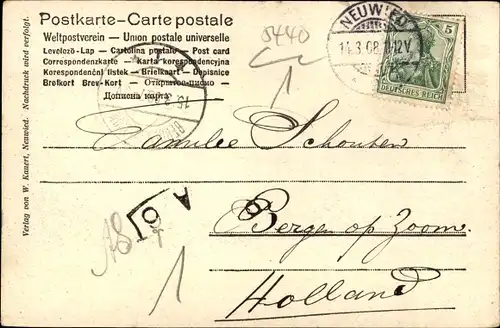 Postkarte-Carte postale
Weltpostverein — Union postale universelle
Levelező-Lap — Cartolina postale — Post card
Correspondenzkarte — Karta korespondencyjna
Korespondenční lístek — Briefkaart — Dopisnice
Brefkort Brev-Kort — Открытое письмо —
Дописна карта
Verlag von W. Kauert, Neuwied. Nachdruck wird verfolgt.
0440
NEUWIED
14.3.08 11-12V
5
DEUTSCHES REICH
Familie Schouten
A
6
Bergen op Zoom
1
1
Holland